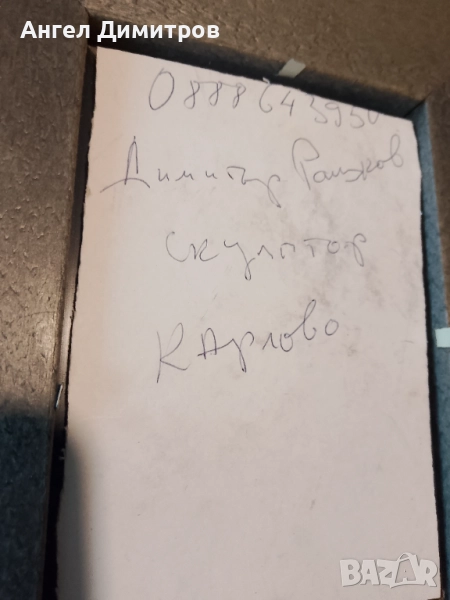 Ангел Димитров
0888643950
Димитър Рашков
скулптор
Карлово
BAZAR